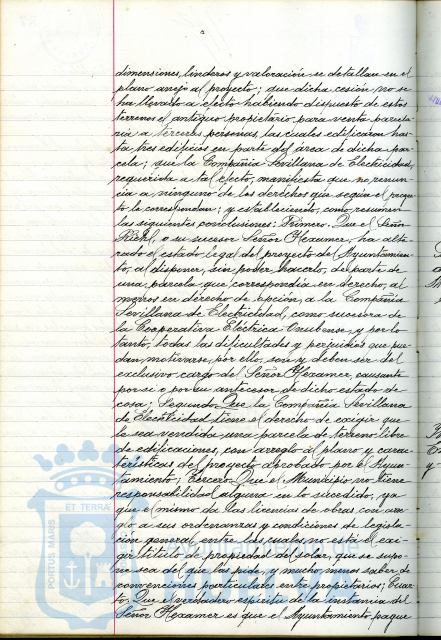 dimensiones, linderos y valoración se detallan en el
plano anejo al proyecto; que dicha cesión no se
ha llevado a efecto habiendo dispuesto de estos
terrenos el antiguo propietario para venta parcela-
ria a terceras personas, las cuales edificaron has-
ta tres edificios en parte del área de dicha par-
cela; que la Compañia Sevillana de Electricidad,
requerida a tal efecto, manifiesta que no renun-
cia a ninguno de los derechos que según el proyec-
to le correspondan; y estableciendo, como resumen
las siguientes conclusiones: Primero. Que el Señor
o su sucesor Señor Hexamer, ha alte-
rado el estado legal del proyecto del Ayuntamien-
to, al disponer, sin poder hacerlo, de parte de
una parcela que correspondía en derecho, al
menos en derecho de opción, a la Compañia
Sevillana de Electricidad, como sucesora de
la Cooperativa Eléctrica Onubense, y por lo
tanto, todas las dificultades y perjuicios que pue-
dan motivarse, por ello, son y deben ser del
exclusivo cargo del Señor Hexamer, causante
por si o por su antecesor de dicho estado de
cosa; Segundo. Que la Compañia Sevillana
de Electricidad tiene el derecho de exigir que
le sea vendida una parcela de terreno libre
de edificaciones, con arreglo al plano y carac-
terísticas del proyecto aprobado por el Ayun-
tamiento; Tercero. Que el Municipio no tiene
responsabilidad alguna en lo sucedido, ya
que el mismo da las licencias de obras con arre-
glo a sus ordenanzas y condiciones de legisla-
ción general entre las cuales, no está el exi-
gir título de propiedad del solar, que se supo-
ne sea del que las pide, y mucho menos saber de
convenciones particulares entre propietarios; Cuar-
to. Que el verdadero espíritu de la instancia del
Señor Hexamer es que el Ayuntamiento pague
PORTUS MARIS ET TERRÆ